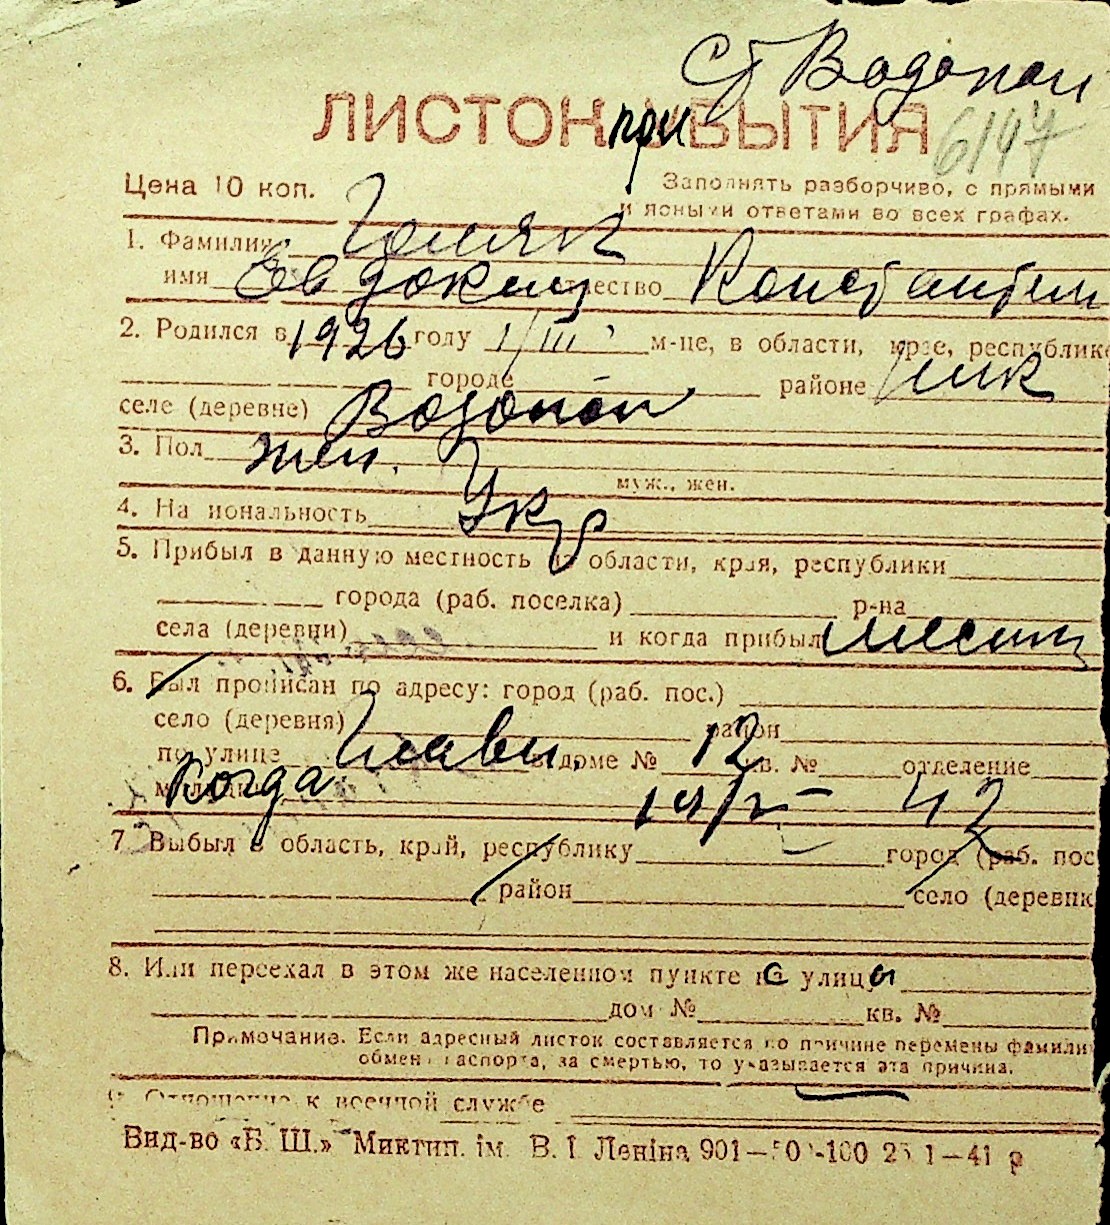 Ст Водопой
ЛИСТОК при БЫТИЯ
6147
Цена 10 коп.
Заполнять разборчиво, с прямыми
и ясными ответами во всех графах.
1. Фамилия
имя Евдокия отчество Константин
2. Родился в 1926 году 1/III м-це, в области, крае, республике
городе районе
селе (деревне) Водопой
3. Пол жен.
муж., жен.
4. Национальность Укр
5. Прибыл в данную местность из области, края, республики
города (раб. поселка) р-на
села (деревни) и когда прибыл
6. Был прописан по адресу: город (раб. пос.)
село (деревня) район
по улице в доме № 12 кв. № отделение
когда 42
7 Выбыл в область, край, республику город (раб. пос
район село (деревня
8. Или переехал в этом же населенном пункте с улицы
дом № кв. №
Примечание. Если адресный листок составляется по причине перемены фамилии
обмена паспорта, за смертью, то указывается эта причина.
9. Отношение к военной службе
Вид-во «Б. Ш.» Миктип. ім. В. І Леніна 901—50 -100 25 1—41 р